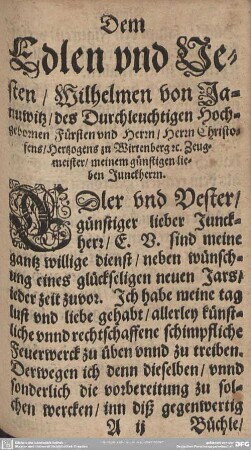 Dem
Edlen vnd Ve-
sten / Wilhelmen von Ja-
nuwitz / des Durchleuchtigen Hoch-
gebornen Fürsten vnd Herrn / Herrn Christof-
fens / Hertzogens zu Wirtenberg ꝛc. Zeug-
meister / meinem günstigen lie-
ben Junckherrn.
EDler vnd Vester /
günstiger lieber Junck-
herr / E. V. sind meine
gantz willige dienst / neben wünsch-
ung eines glückseligen neuen Jars /
jeder zeit zuvor. Ich habe meine tag
lust vnd liebe gehabt / allerley künst-
liche vnnd rechtschaffene schimpfliche
Feuerwerck zu üben vnnd zu treiben.
Derwegen ich denn dieselben / vnnd
sonderlich die vorbereitung zu sol-
chen wercken / inn diß gegenwertig
A ij Büchle /